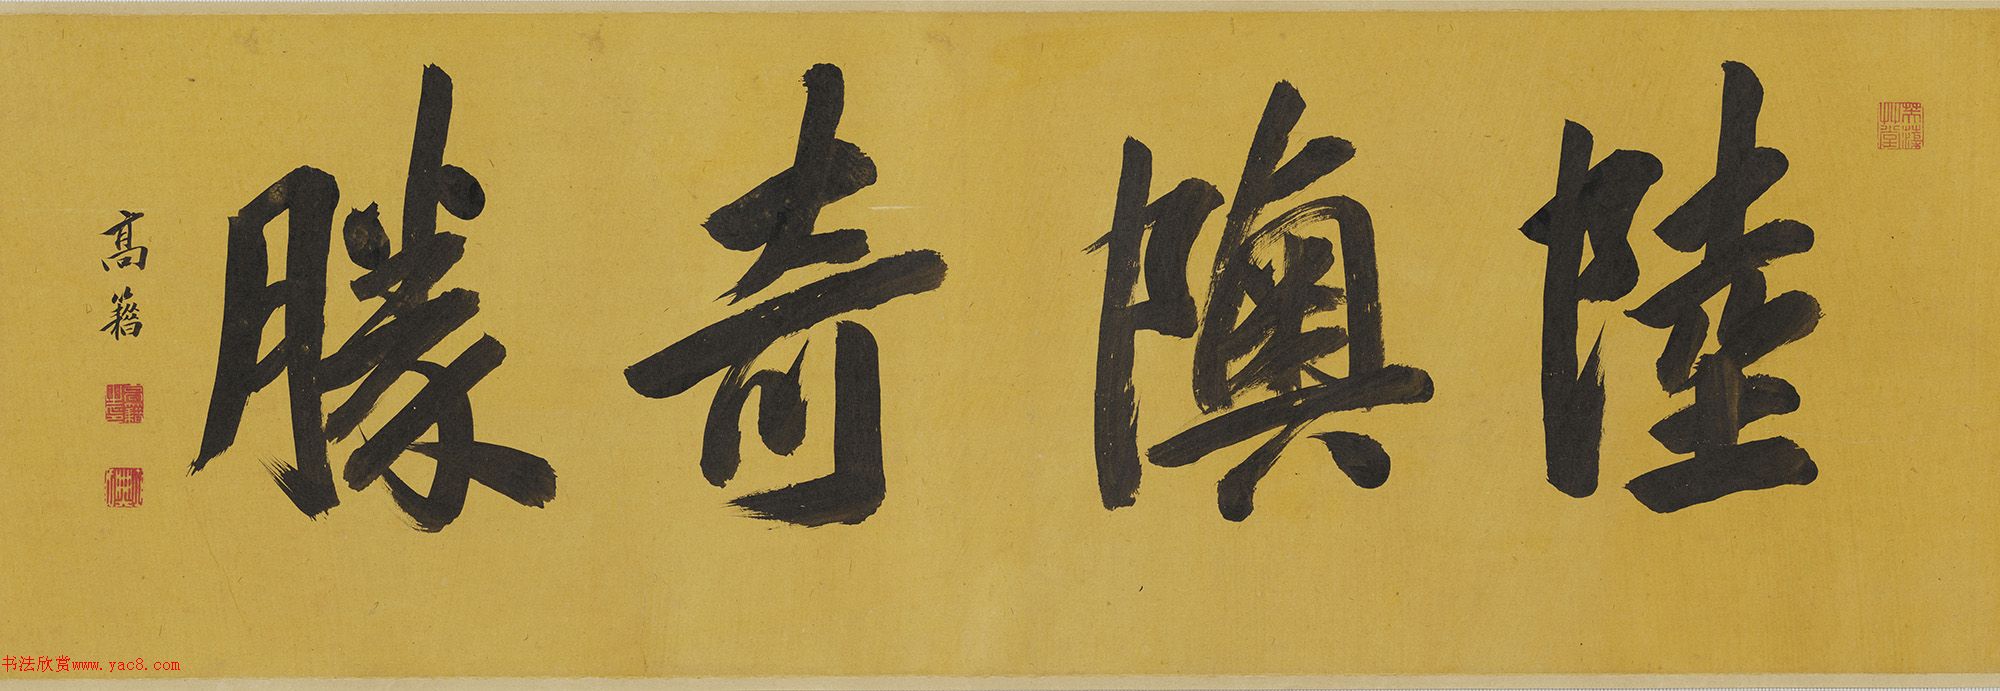 陸隩奇勝
高簪
书法欣赏www.yac8.com